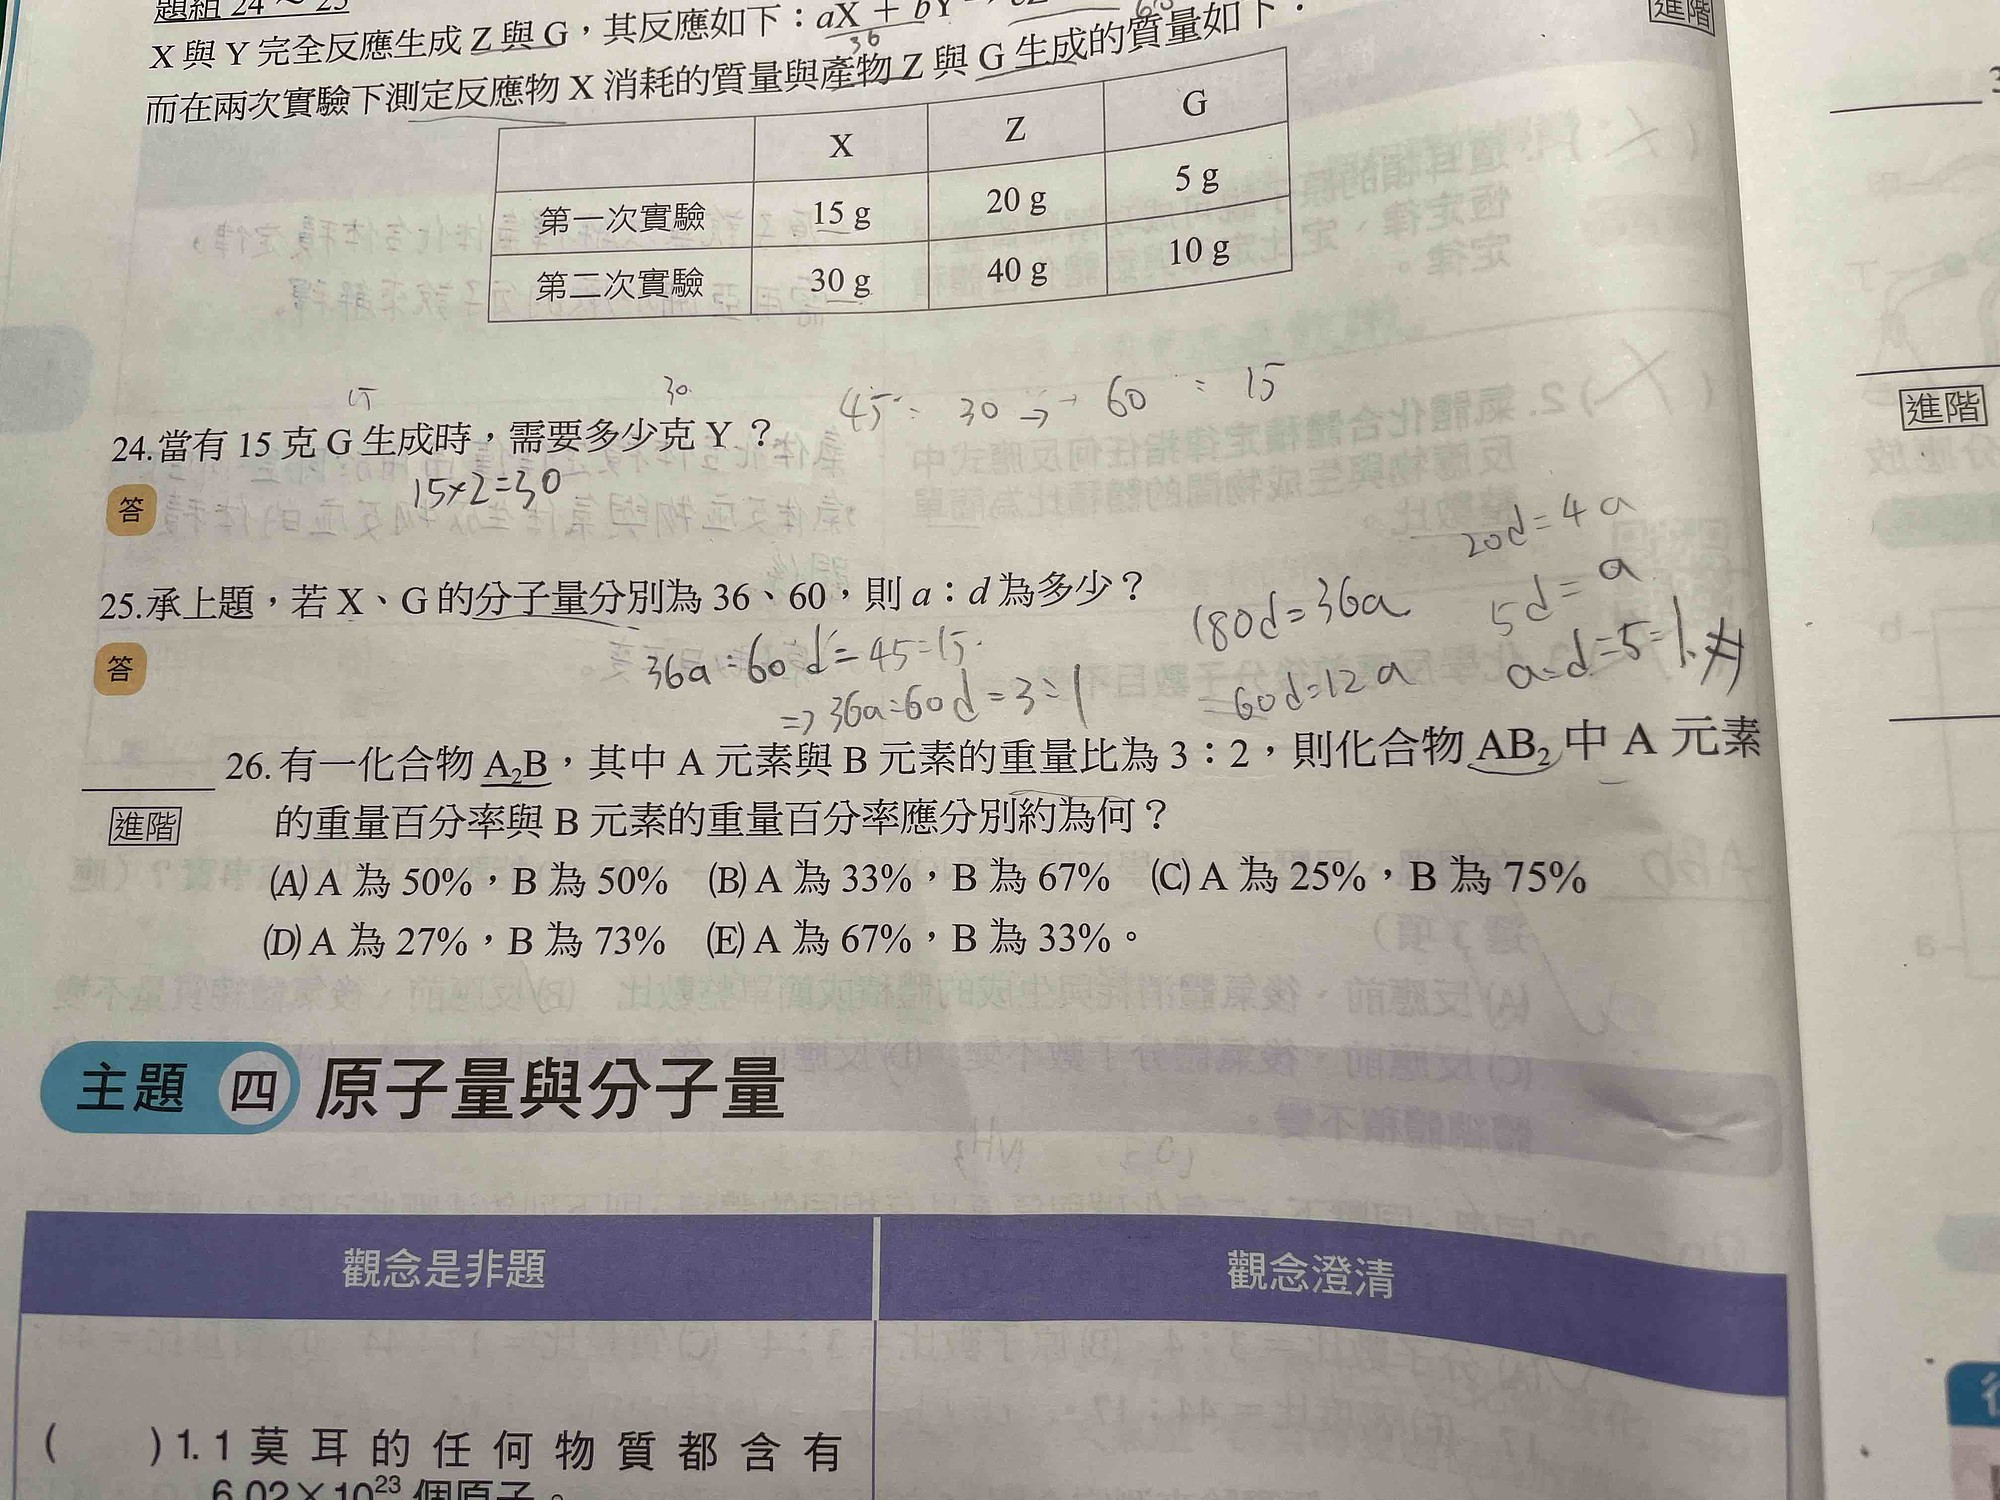 題組 24～25
X 與 Y 完全反應生成 Z 與 G，其反應如下：aX + bY
36
而在兩次實驗下測定反應物 X 消耗的質量與產物 Z 與 G 生成的質量如下：
X Z G
第一次實驗 15 g 20 g 5 g
第二次實驗 30 g 40 g 10 g
15 30
45 : 30 → 60 : 15
24.當有 15 克 G 生成時，需要多少克 Y？
答
15×2=30
25.承上題，若 X、G 的分子量分別為 36、60，則 a：d 為多少？
答
36a:60d=45:15
=>36a:60d=3:1
180d=36a
=60d=12a
20d=4a
5d=a
a:d=5:1
26. 有一化合物 A₂B，其中 A 元素與 B 元素的重量比為 3：2，則化合物 AB₂ 中 A 元素
進階
的重量百分率與 B 元素的重量百分率應分別約為何？
(A) A 為 50%，B 為 50% (B) A 為 33%，B 為 67% (C) A 為 25%，B 為 75%
(D) A 為 27%，B 為 73% (E) A 為 67%，B 為 33%。
主題 四 原子量與分子量
觀念是非題 觀念澄清
( ) 1. 1 莫耳的任何物質都含有
6.02×10²³ 個原子。
進階
進階